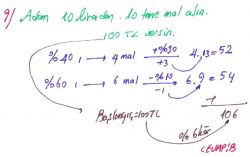 9/ Adam 10 liradan 10 tane mal alsın.
100 TL versin.
%40 ı → 4 mal +%30 +3 4.13=52
%60 ı → 6 mal -%10 -1 6.9=54
+
Başlangıç=100TL 106
%6 kâr
CEVAP:B